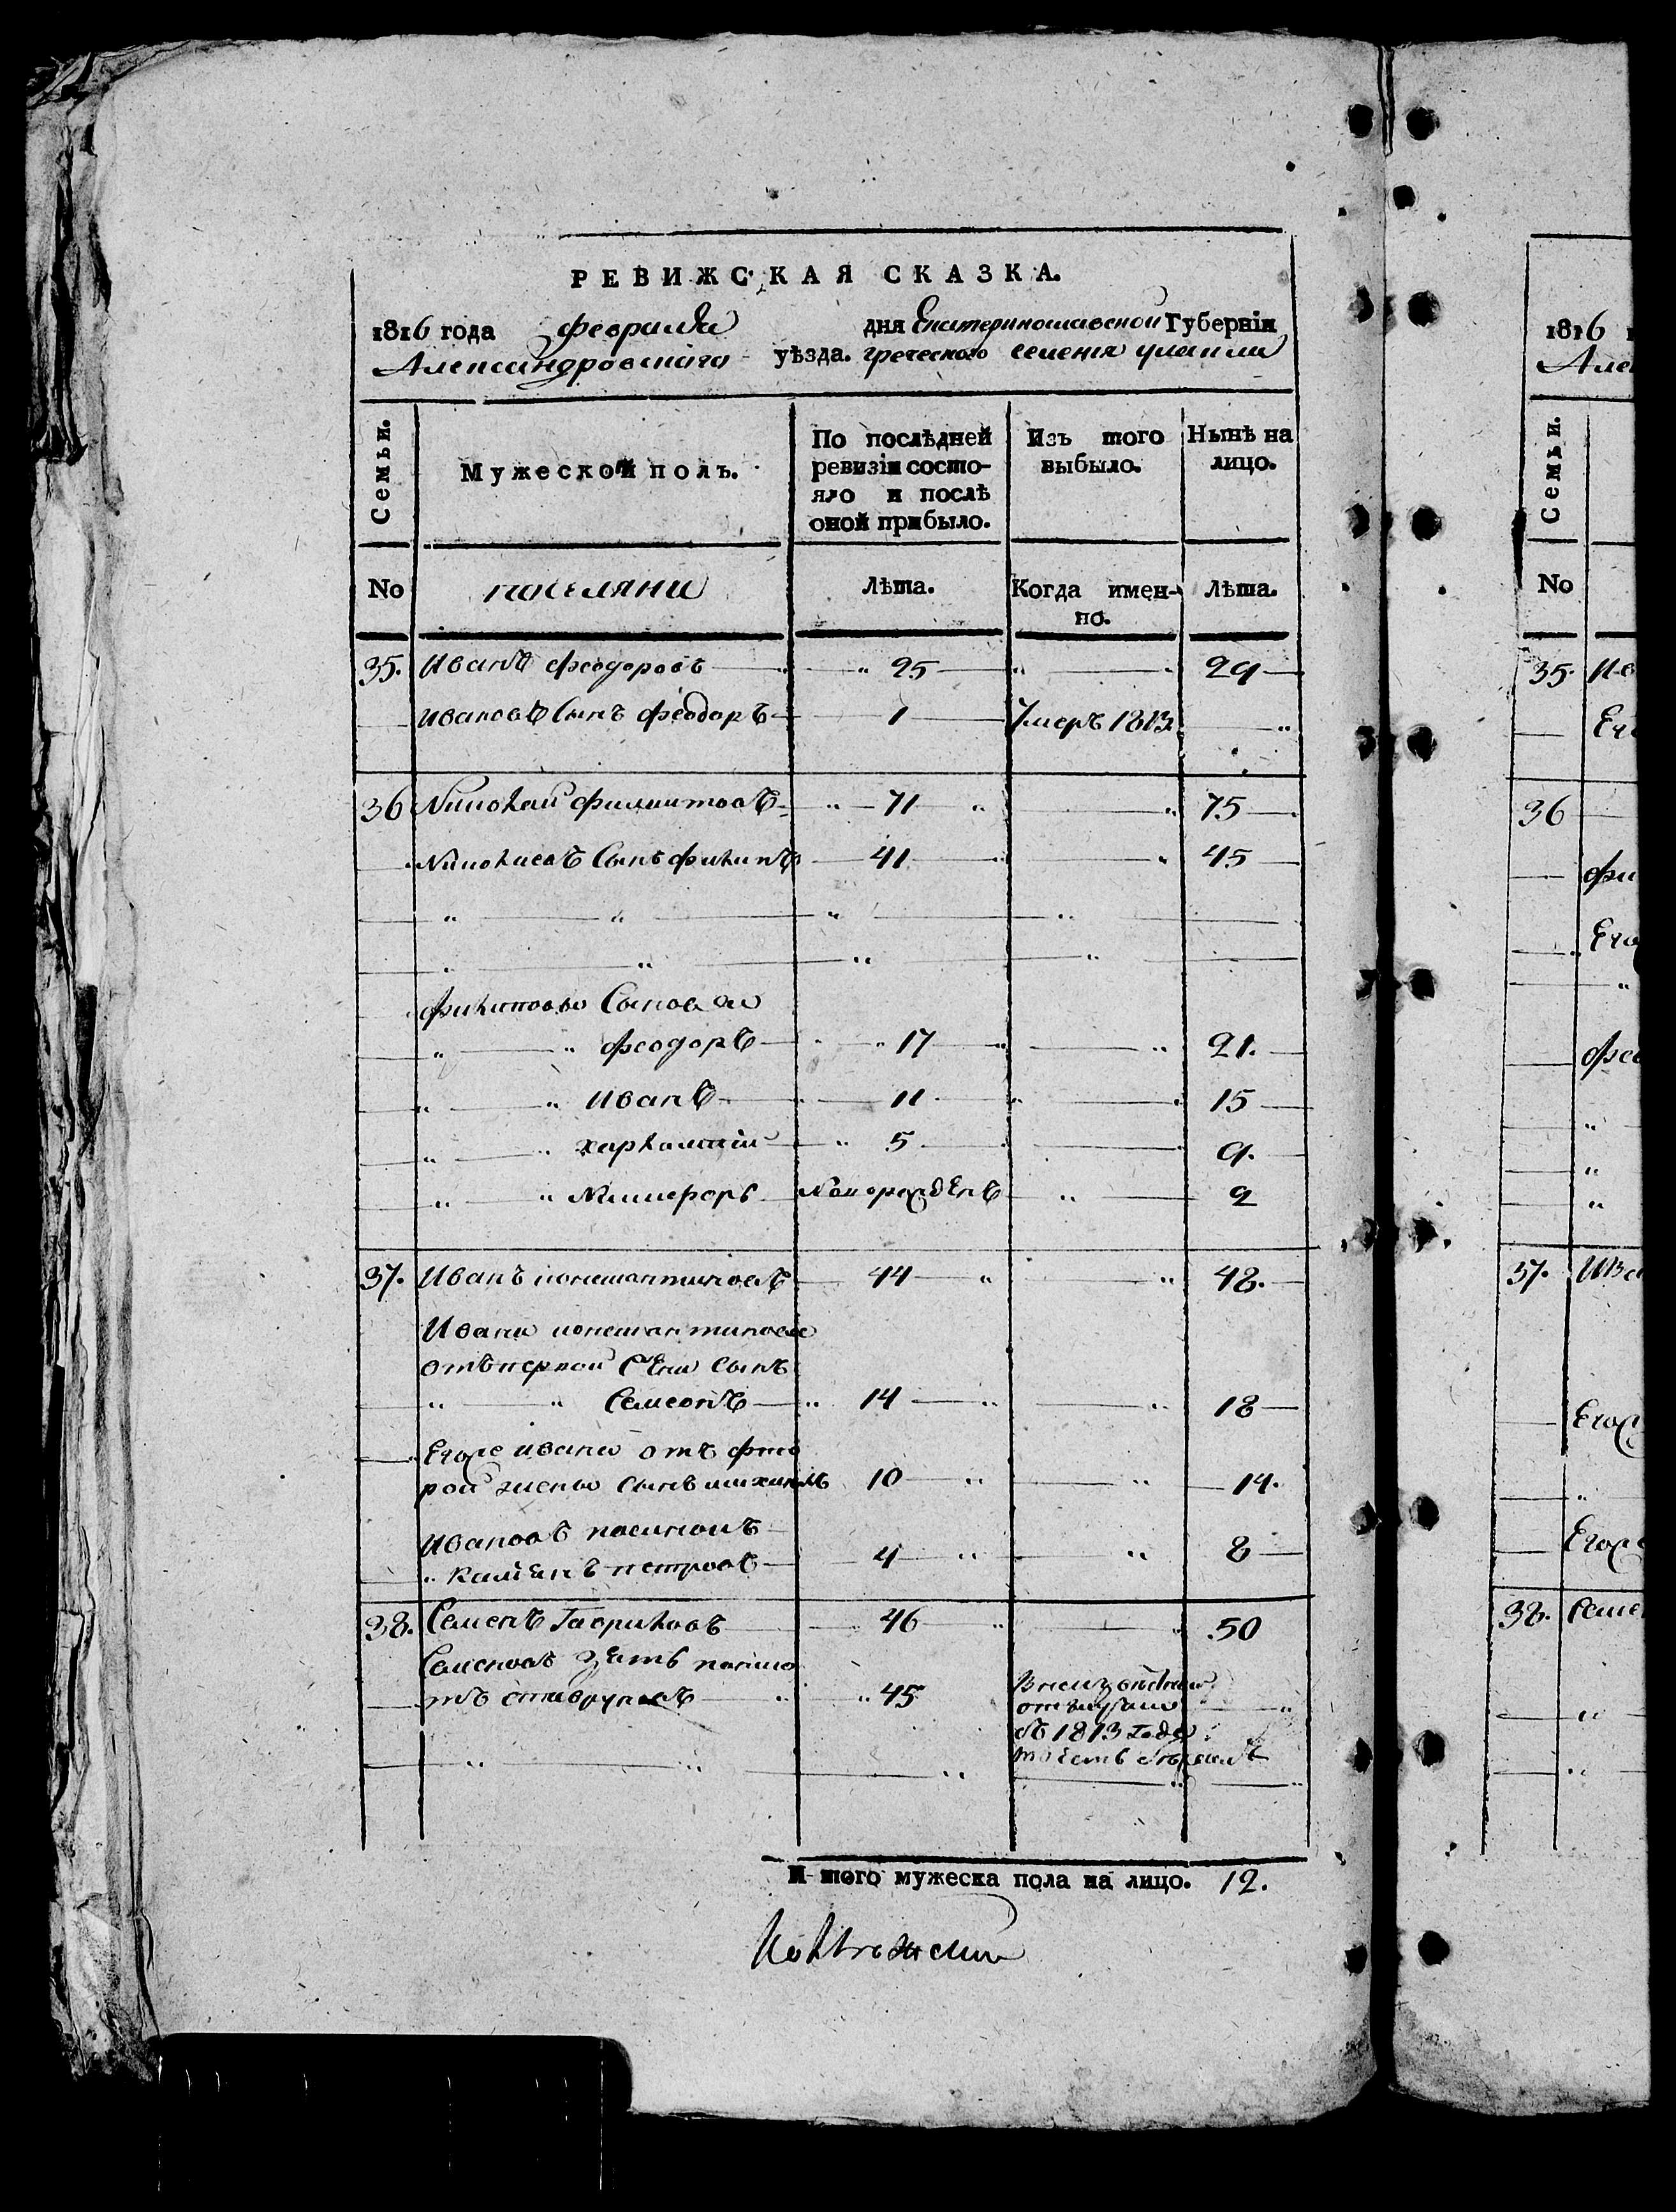 РЕВИЖСКАЯ СКАЗКА.
1816 года февраля дня Екатеринославской Губернiи
Александровского уѣзда. греческого селения
Семьи. Мужеской полъ. По послѣдней ревизiи состояло и послѣ оной прибыло. Изъ того выбыло. Нынѣ на лицо.
No поселяни Лѣта. Когда именно. Лѣта.
35. Иванъ феодоровъ 25 29
Ивановъ Сынъ феодоръ 1 Умеръ 1813
36 Николай филиповъ 71 75
Николаевъ Сынъ филипъ 41 45
филиповы Сыновья
феодоръ 17 21.
Иванъ 11 15
харлампiй 5 9.
Никифоръ Новорожденъ 2
37. Иванъ константиновъ 44 48.
Ивана константинова
отъ первой жены сынъ
Семеонъ 14 18
Егоже ивана отъ фто
рой жены сынъ михаилъ 10 14.
Ивановъ пасынокъ
петровъ 4 8
38. Семенъ Гавриловъ 46 50
Семеновъ зять
45
1813 года
И того мужеска пола на лицо. 12.
1816
Але
Семьи.
No
35. Ив
Его
36
фи
Его
фео
37. Ива
Егож
Егоже
38. Семе